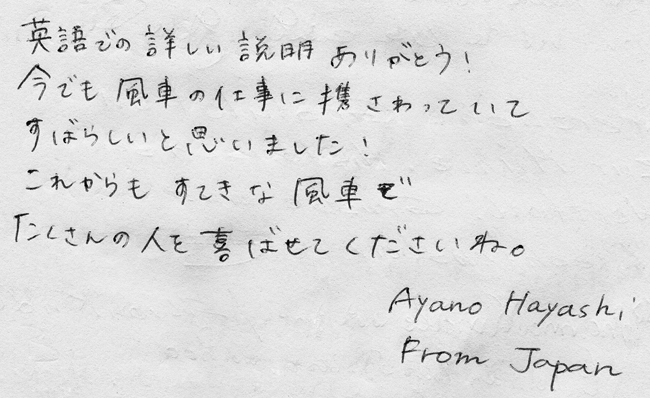 英語での詳しい説明ありがとう!
今でも風車の仕事に携さわっていて
すばらしいと思いました!
これからもすてきな風車で
たくさんの人を喜ばせてくださいね。
Ayano Hayashi
From Japan